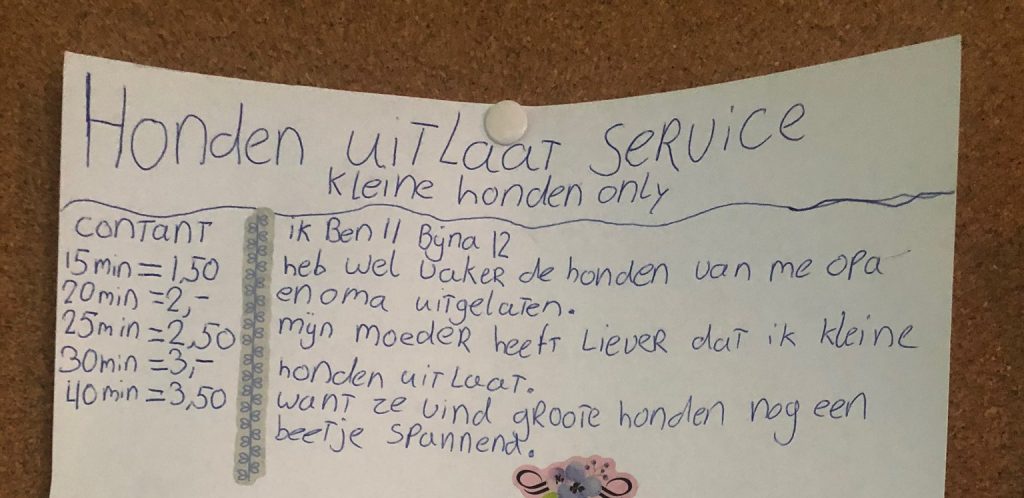 Honden uitlaat service
kleine honden only
contant
15min = 1,50
20min = 2,-
25min = 2,50
30min = 3,-
40min = 3,50
ik Ben 11 Bijna 12
heb wel vaker de honden van me opa
en oma uitgelaten.
mijn moeder heeft Liever dat ik kleine
honden uitlaat.
want ze vind groote honden nog een
beetje spannend.